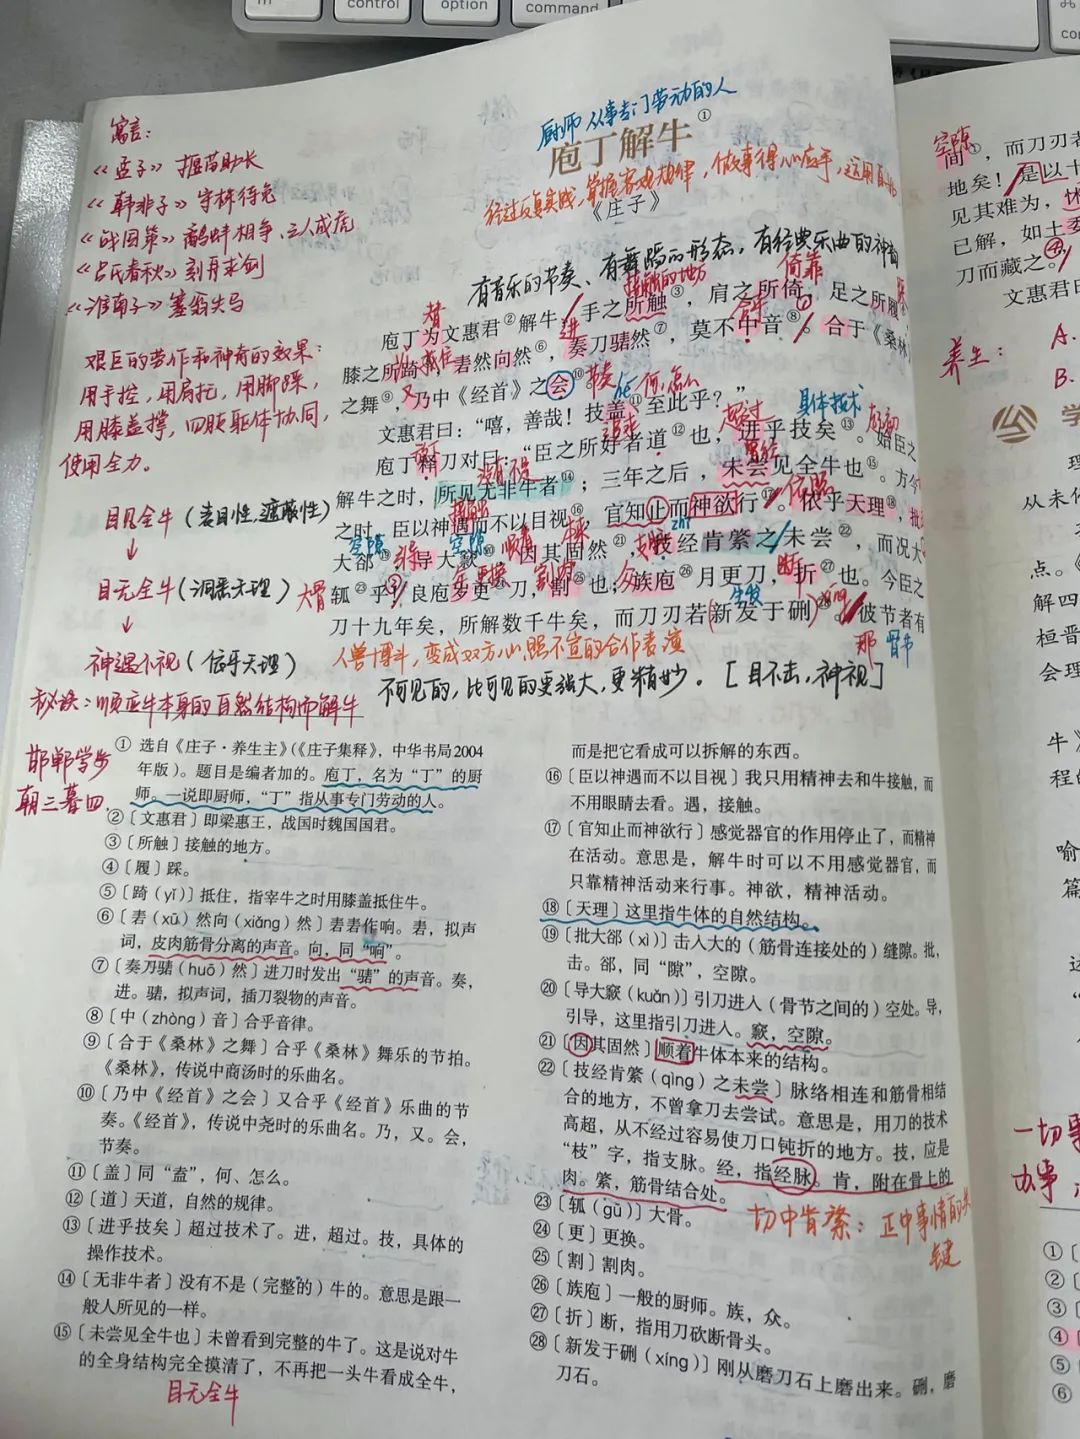 control
option
command
厨师 从事专门劳动的人
庖丁解牛①
经过反复实践,掌握客观规律,做事得心应手,运用自如
《庄子》
有音乐的节奏、有舞蹈的形态,有经典乐曲的神韵
寓言:
《孟子》揠苗助长
《韩非子》守株待兔
《战国策》鹬蚌相争、三人成虎
《吕氏春秋》刻舟求剑
《淮南子》塞翁失马
艰巨的劳作和神奇的效果:
用手控,用肩扛,用脚踩,
用膝盖撑,四肢躯体协同,
使用全力。
目见全牛(表面性,遮蔽性)
↓
目无全牛(洞悉天理)
↓
神遇不视(信乎天理)
秘诀:顺应牛本身的自然结构而解牛
邯郸学步
朝三暮四
替
接触的地方
倚靠
庖丁为文惠君②解牛,手之所触③,肩之所倚,足之所履
进
合乎
膝之所踦,砉然向然⑥,奏刀騞然⑦,莫不中音⑧。合于《桑林》
抵住
又
节奏
何,怎么
之舞⑨,乃中《经首》之会⑩。
文惠君曰:“嘻,善哉!技盖⑪至此乎?”
追求
超过
具体技术
起初
庖丁释刀对曰:“臣之所好者道⑫也,进乎技矣⑬。始臣之
没有不是
曾经
解牛之时,所见无非牛者⑭;三年之后,未尝见全牛也⑮。方今
接触
依照
之时,臣以神遇而不以目视⑯,官知止而神欲行⑰。依乎天理⑱,批
空隙
引导
空隙
顺着
本来
支脉
zhī
大郤⑲,导大窾⑳,因其固然㉑,技经肯綮之未尝㉒,而况大
大骨
更换
割肉
断
軱㉓乎!良庖岁更㉔刀,割㉕也;族庖㉖月更刀,折㉗也。今臣之
xíng
刀十九年矣,所解数千牛矣,而刀刃若新发于硎㉘。彼节者有
那
骨节
人兽博斗,变成双方心照不宣的合作表演
不可见的,比可见的更强大,更精妙。[目不击,神视]
① 选自《庄子·养生主》(《庄子集释》,中华书局2004
年版)。题目是编者加的。庖丁,名为“丁”的厨
师。一说即厨师,“丁”指从事专门劳动的人。
②〔文惠君〕即梁惠王,战国时魏国国君。
③〔所触〕接触的地方。
④〔履〕踩。
⑤〔踦(yǐ)〕抵住,指宰牛之时用膝盖抵住牛。
⑥〔砉(xū)然向(xiǎng)然〕砉砉作响。砉,拟声
词,皮肉筋骨分离的声音。向,同“响”。
⑦〔奏刀騞(huō)然〕进刀时发出“騞”的声音。奏,
进。騞,拟声词,插刀裂物的声音。
⑧〔中(zhòng)音〕合乎音律。
⑨〔合于《桑林》之舞〕合乎《桑林》舞乐的节拍。
《桑林》,传说中商汤时的乐曲名。
⑩〔乃中《经首》之会〕又合乎《经首》乐曲的节
奏。《经首》,传说中尧时的乐曲名。乃,又。会,
节奏。
⑪〔盖〕同“盍”,何、怎么。
⑫〔道〕天道,自然的规律。
⑬〔进乎技矣〕超过技术了。进,超过。技,具体的
操作技术。
⑭〔无非牛者〕没有不是(完整的)牛的。意思是跟一
般人所见的一样。
⑮〔未尝见全牛也〕未曾看到完整的牛了。这是说对牛
的全身结构完全摸清了,不再把一头牛看成全牛,
目无全牛
而是把它看成可以拆解的东西。
⑯〔臣以神遇而不以目视〕我只用精神去和牛接触,而
不用眼睛去看。遇,接触。
⑰〔官知止而神欲行〕感觉器官的作用停止了,而精神
在活动。意思是,解牛时可以不用感觉器官,而
只靠精神活动来行事。神欲,精神活动。
⑱〔天理〕这里指牛体的自然结构。
⑲〔批大郤(xì)〕击入大的(筋骨连接处的)缝隙。批,
击。郤,同“隙”,空隙。
⑳〔导大窾(kuǎn)〕引刀进入(骨节之间的)空处。导,
引导,这里指引刀进入。窾,空隙。
㉑〔因其固然〕顺着牛体本来的结构。
㉒〔技经肯綮(qìng)之未尝〕脉络相连和筋骨相结
合的地方,不曾拿刀去尝试。意思是,用刀的技术
高超,从不经过容易使刀口钝折的地方。技,应是
“枝”字,指支脉。经,指经脉。肯,附在骨上的
肉。綮,筋骨结合处。
㉓〔軱(gū)〕大骨。
切中肯綮:正中事情的关
键
㉔〔更〕更换。
㉕〔割〕割肉。
㉖〔族庖〕一般的厨师。族,众。
㉗〔折〕断,指用刀砍断骨头。
㉘〔新发于硎(xíng)〕刚从磨刀石上磨出来。硎,磨
刀石。
空隙
间①,而刀刃者
地矣!是以十
见其难为,怵
已解,如土委
刀而藏之。
文惠君曰
养生:
A.
B.
学
理
从未
点。《
解四
桓晋
会理
牛》
程的
喻
篇
这
一切事
办事
①〔
②〔
③〔
④
⑤
⑥